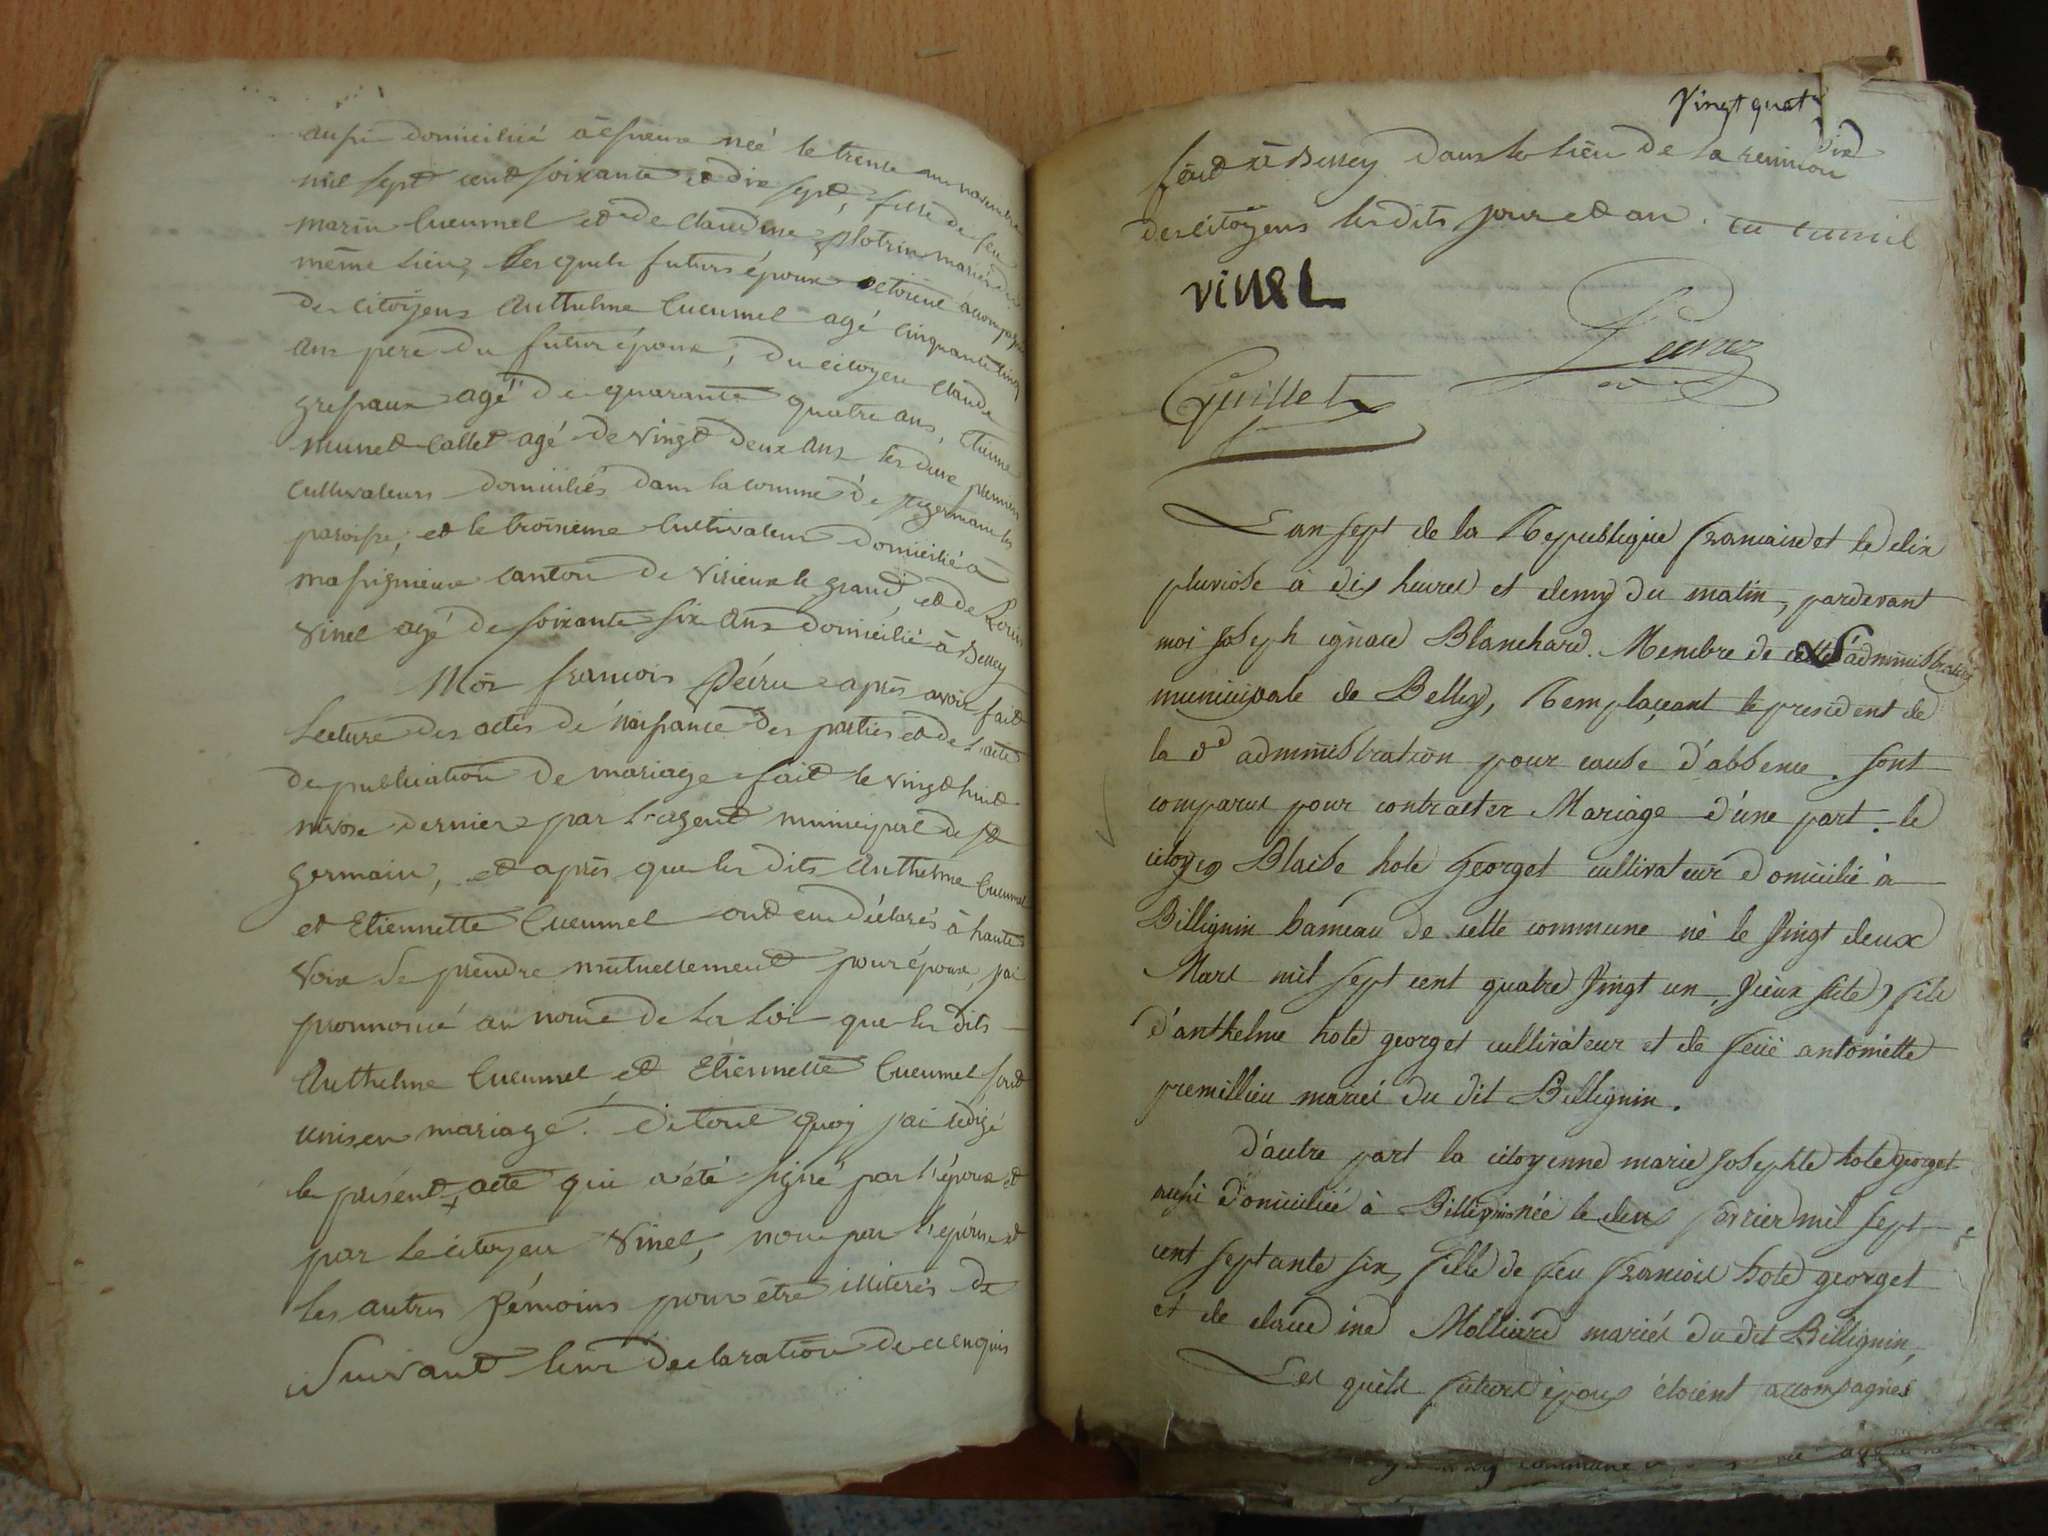 aussi domicilié à née le trente un
mil sept cent soixante et dix sept, fille de feu
marin Cucumel et de Claudine plotrin mariés du
même Lieu, Les quels futurs époux étoient accompagnés
des citoyens Anthelme Cucumel agé cinquante cinq
ans pere du futur époux; du citoyen Claude
agé de quarante quatre ans, Etienne
munet Callet agé de vingt deux ans les deux premiers
cultivateurs domiciliés dans la commune de st germain les
paroisse; et le troisieme cultivateur domicilié à
massignieux canton de virieux le grand, et de Louis
vinel agé de soixante six ans domicilié à Belley
Moi francois Peiru après avoir fait
Lecture des actes de naissance des parties et de l'acte
de publication de mariage fait le vingt huit
nivose dernier par l'agent municipal de st
germain, et après que les dits Anthelme Cucumel
et Etiennette Cucumel ont eu déclarés à haute
voix se prendre mutuellement pour époux, j'ai
prononcé au nom de La Loi que les dits
Anthelme Cucumel et Etiennette Cucumel sont
unis en mariage. De tout quoy j'ai rédigé
le présent acte qui a été signé par l'époux et
par le citoyen vinel, non par l'épouse et
les autres témoins pour être illiterés de
Suivant leur déclaration de ce enquis
vingt quat
fait à Belley dans le lieu de la reunion
des citoyens les dits jour et an.
vinel
Guillet
L'an sept de la Republique francaise et le dix
pluviose à dix heures et demy du matin, pardevant
moi Joseph ignace Blanchard. Membre de l'administration
municipale de Belley, Remplaçant le president de
la de administration pour cause d'absence. sont
comparus pour contracter Mariage d'une part. le
citoyen Blaise hote georget cultivateur domicilié à
Billignin hameau de cette commune né le vingt deux
Mars mil sept cent quatre vingt un, vieux stile, fils
d'anthelme hote georget cultivateur et de feue antoinette
premillieu mariés du dit Billignin.
d'autre part la citoyenne marie josephte hote georget
aussi domiciliée à Billignin née le deux fevrier mil sept
cent septante six, fille de feu francois hote georget
et de claudine Molliard mariés du dit Billignin,
Les quels futurs époux étoient accompagnés